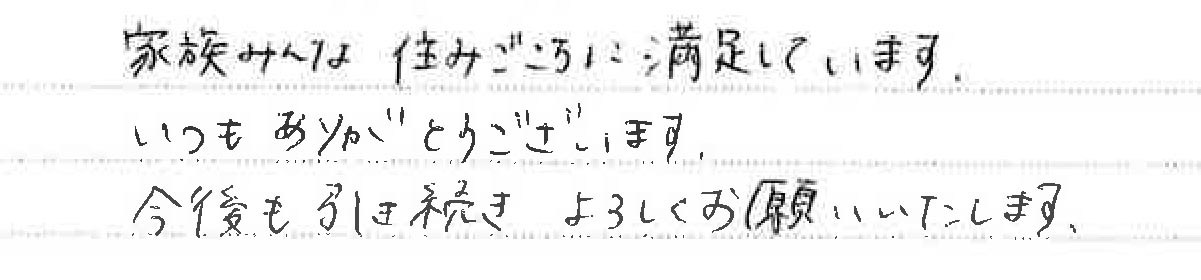 家族みんな 住みごころに満足しています.
いつもありがとうございます.
今後も引き続き よろしくお願いいたします.